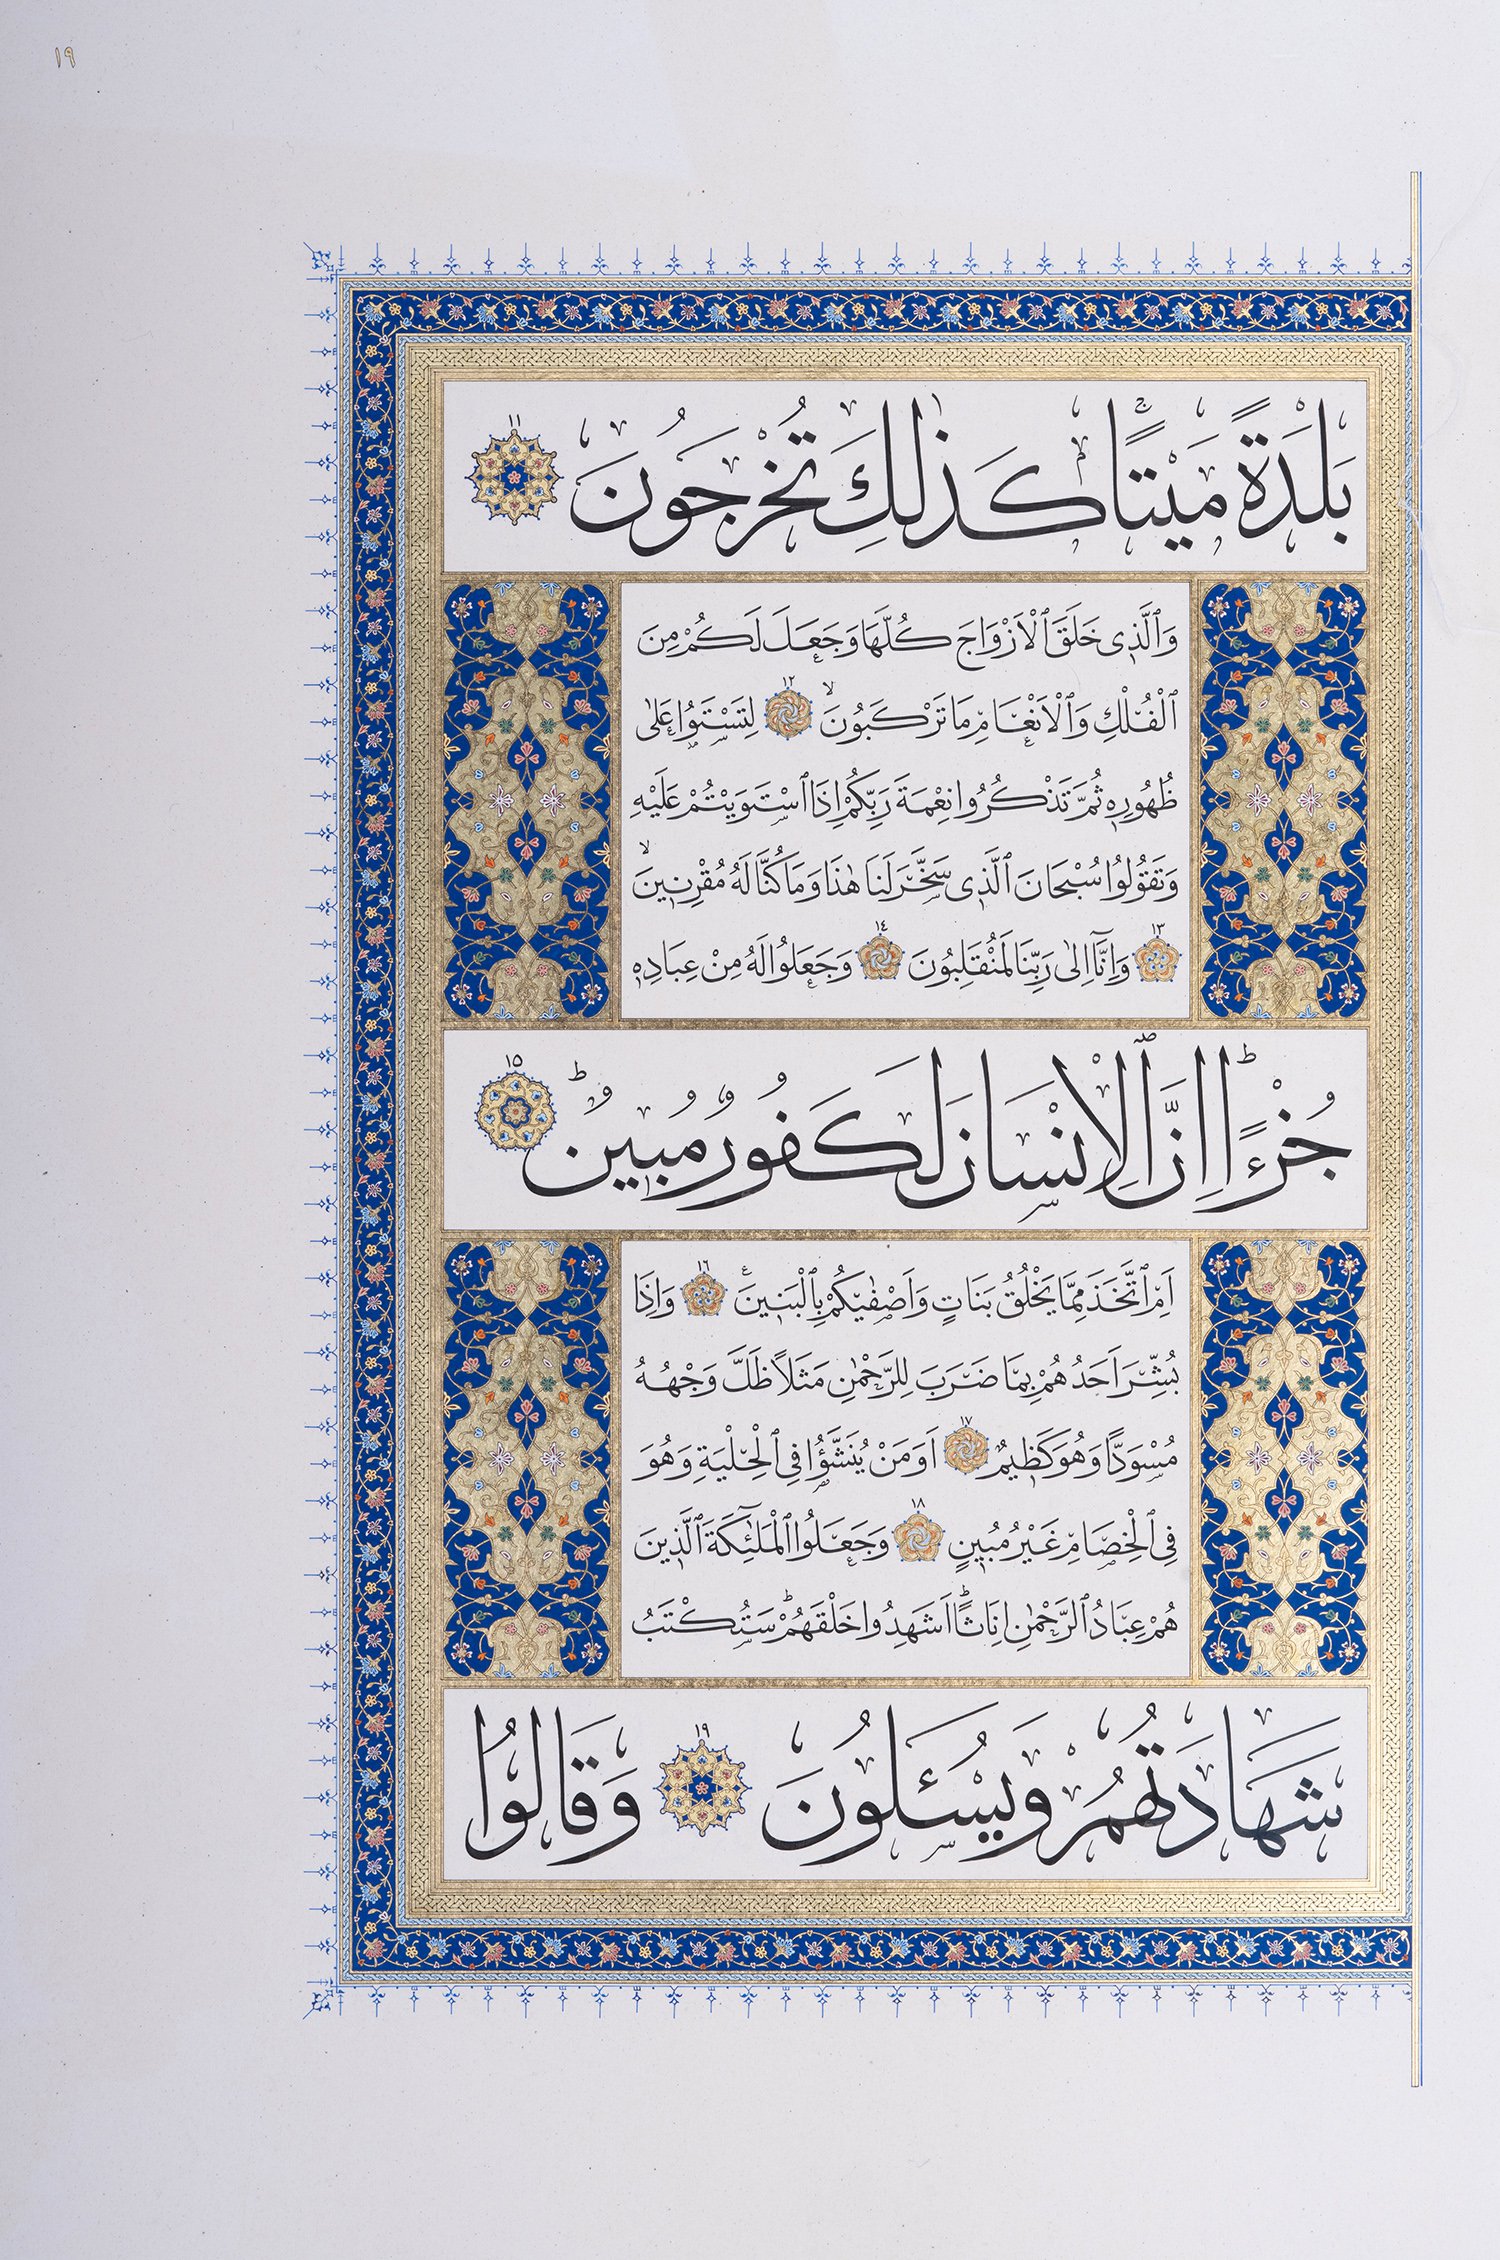 ١٩
بَلْدَةً مَيْتًاۚ كَذٰلِكَ تُخْرَجُونَ ١١
وَٱلَّذِى خَلَقَ ٱلْاَزْوَاجَ كُلَّهَا وَجَعَلَ لَكُمْ مِنَ
ٱلْفُلْكِ وَٱلْاَنْعَامِ مَا تَرْكَبُونَۙ ١٢ لِتَسْتَوُا عَلٰى
ظُهُورِهِ ثُمَّ تَذْكُرُوا نِعْمَةَ رَبِّكُمْ اِذَا ٱسْتَوَيْتُمْ عَلَيْهِ
وَتَقُولُوا سُبْحَانَ ٱلَّذِى سَخَّرَ لَنَا هٰذَا وَمَا كُنَّا لَهُ مُقْرِنِينَۙ
١٣ وَاِنَّٓا اِلٰى رَبِّنَا لَمُنْقَلِبُونَ ١٤ وَجَعَلُوا لَهُ مِنْ عِبَادِهِ
جُزْءًاؕ اِنَّ ٱلْاِنْسَانَ لَكَفُورٌ مُبِينٌؕ ١٥
اَمِ ٱتَّخَذَ مِمَّا يَخْلُقُ بَنَاتٍ وَاَصْفٰيكُمْ بِٱلْبَنِينَ ١٦ وَاِذَا
بُشِّرَ اَحَدُهُمْ بِمَا ضَرَبَ لِلرَّحْمٰنِ مَثَلًا ظَلَّ وَجْهُهُ
مُسْوَدًّا وَهُوَ كَظِيمٌ ١٧ اَوَمَنْ يُنَشَّؤُا فِى ٱلْحِلْيَةِ وَهُوَ
فِى ٱلْخِصَامِ غَيْرُ مُبِينٍ ١٨ وَجَعَلُوا ٱلْمَلٰٓئِكَةَ ٱلَّذِينَ
هُمْ عِبَادُ ٱلرَّحْمٰنِ اِنَاثًاؕ اَشَهِدُوا خَلْقَهُمْؕ سَتُكْتَبُ
شَهَادَتُهُمْ وَيُسْـَٔلُونَ ١٩ وَقَالُوا